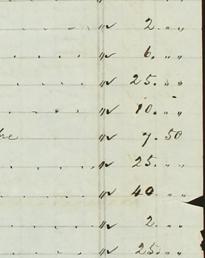 " 2 . " "
" 6 . " "
" 25 . " "
" 10 . " "
" 7 . 50
" 25 . " "
" 40 " "
" 2 . " "
" 25 . " "